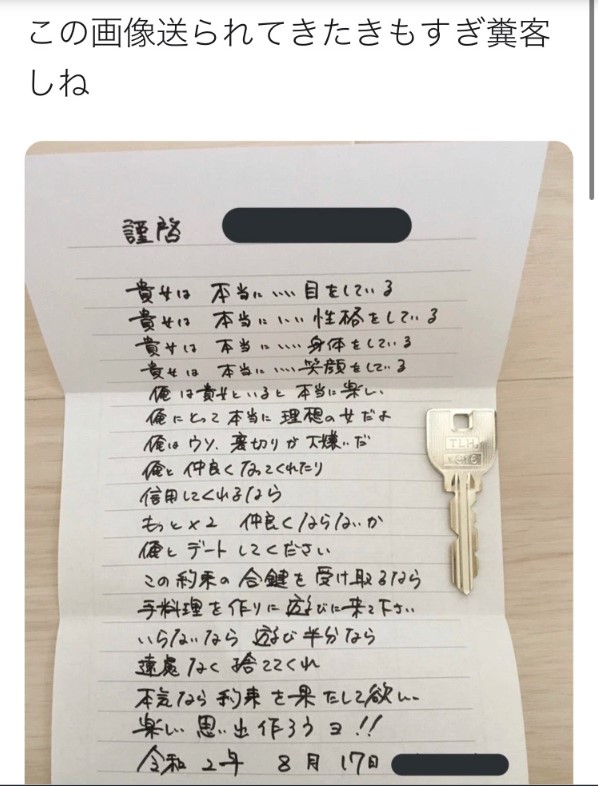 この画像送られてきたきもすぎ糞客
しね
謹啓
貴女は 本当にいい目をしている
貴女は 本当にいい性格をしている
貴女は 本当にいい身体をしている
貴女は 本当にいい笑顔をしている
俺は貴女といると本当に楽しい
俺にとって本当に理想の女だよ
俺はウソ、裏切りが大嫌いだ
俺と仲良くなってくれたり
信用してくれるなら
もっと×2 仲良くならないか
俺とデートしてください
この約束の合鍵を受け取るなら
手料理を作りに遊びに来て下さい
いらないなら遊び半分なら
遠慮なく捨ててくれ
本気なら約束を果たして欲しい
楽しい思い出作ろうヨ!!
令和2年 8月17日
TLH